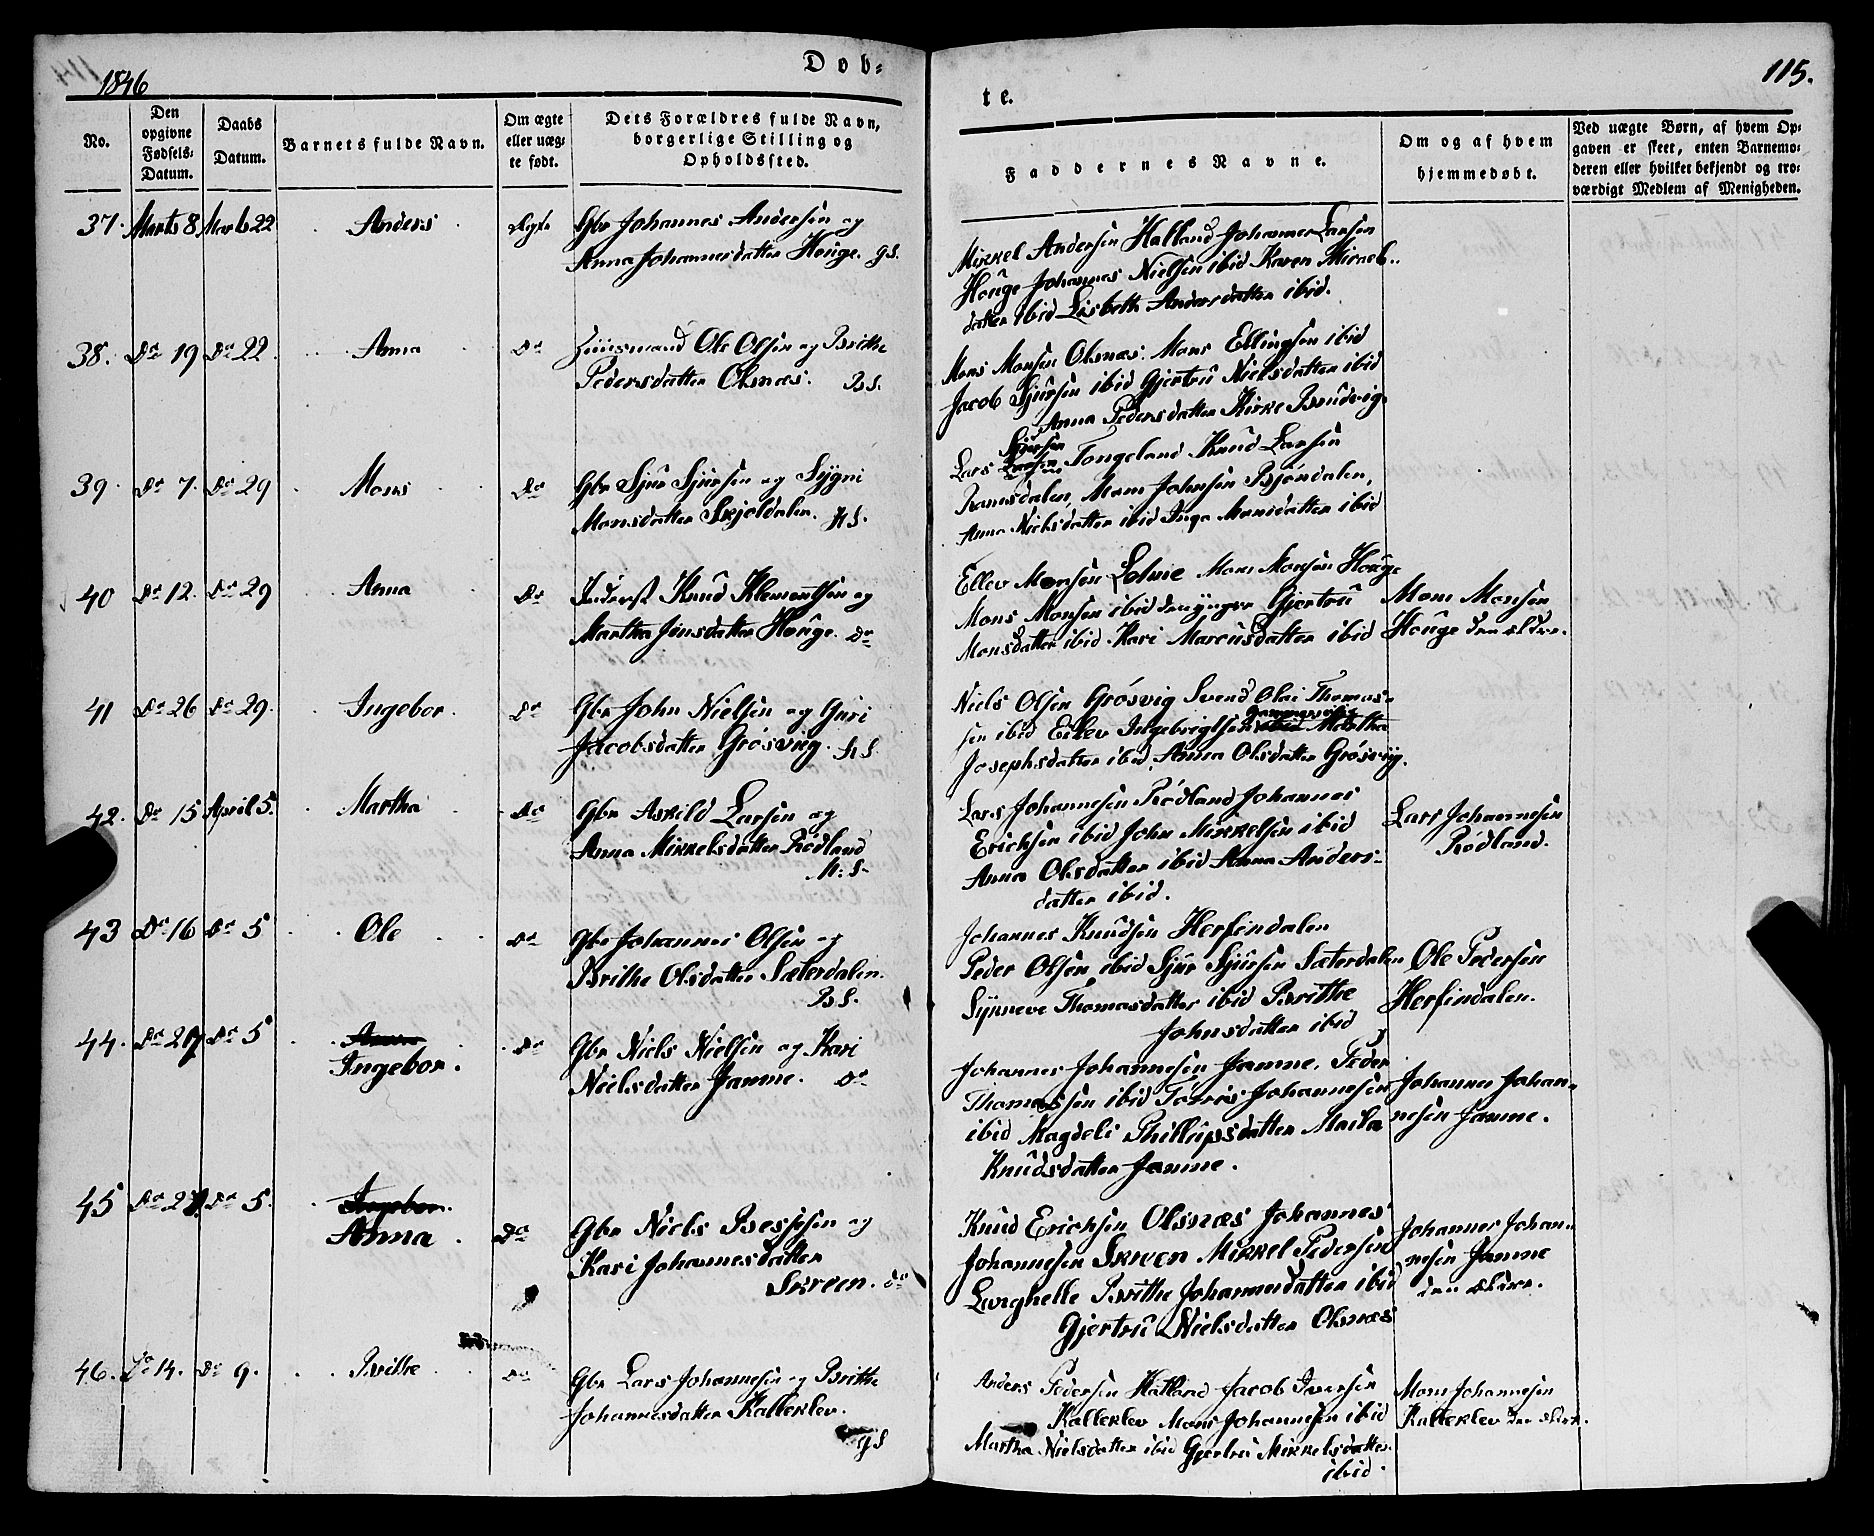 1846
Døb-
te.
115.
No.
Den opgivne Fødsels-Datum.
Daabs Datum.
Barnets fulde Navn.
Om ægte eller uæg-te født.
Dets Forældres fulde Navn, borgerlige Stilling og Opholdssted.
Faddernes Navne.
Om og af hvem hjemmedøbt.
Ved uægte Børn, af hvem Op-gaven er skeet, enten Barnemo-deren eller hvilket bekjendt og tro-værdigt Medlem af Menigheden.
37. Marts 8 Marts 22 Anders Ægte
Gbr Johannes Andersen og
Anna Johannesdatter Houge. GS.
Mikkel Andersen Halland Johannes Larsen
Houge Johannes Nielsen ibid Karen Mikkels-
datter ibid Lisbeth Andersdatter ibid.
38. Do 19 Do 22 Anna Do
Huusmand Ole Olsen og Brithe
Pedersdatter Olsnæs. BS.
Mons Monsen Olsnæs. Mons Ellingsen ibid
Jacob Sjursen ibid Gjertru Nielsdatter ibid
Anna Pedersdatter Kirke Bruvig.
39. Do 7. Do 29 Mons Do
Gbr Sjur Sjursen og Sygni
Monsdatter Skjoldalen. HS.
Sjursen
Lars Larsen Tongeland Knud Larsen
Ramsdalen, Mons Johnsen Bjøndalen,
Anna Nielsdatter ibid Inga Monsdatter ibid
40 Do 12. Do 29 Anna Do
Inderst Knud Klementsen og
Martha Jonsdatter Houge. Do
Ellev Monsen Lohne Mons Monsen Houge
Mons Monsen ibid den yngre Gjertru
Monsdatter ibid. Kari Marcusdatter ibid
Mons Monsen
Houge den eldre.
41 Do 26 Do 29. Ingebor. Do
Gbr John Nielsen og Guri
Jacobsdatter Grøsvig. HS
Niels Olsen Grøsvig Svend Olai Thomas-
sen ibid Ellev Ingebrigtsen ibid Martha
Josephsdatter ibid, Anna Olsdatter Grøsvig.
42. Do 15 April 5. Martha Do
Gbr Askild Larsen og
Anna Mikkelsdatter Rødland
HS.
Lars Johannesen Rødland Johannes
Erichsen ibid John Mikkelsen ibid
Anna Olsdatter ibid Anna Anders-
datter ibid.
Lars Johannesen
Rødland.
43 Do 16 Do 5 Ole Do
Gbr Johannes Olsen og
Brithe Olsdatter Sæterdalen.
BS.
Johannes Knudsen Herfindalen
Peder Olsen ibid Sjur Sjursen Sæterdalen
Synneve Thomasdatter ibid Brithe
Johnsdatter ibid
Ole Pedersen
Herfindalen.
44. Do 27 Do 5 Anna
Ingebor. Do
Gbr Niels Nielsen og Kari
Nielsdatter Jamne. Do
Johannes Johannesen Jamne. Peder
Thomassen ibid Torris Johannesen
ibid Magdeli Phillipsdatter Marta
Knudsdatter Jamne.
Johannes Johan-
nesen Jamne.
45 Do 27. Do 5. Ingebor.
Anna. Do
Gbr Niels Bessesen og
Kari Johannesdatter
Skreen. do
Knud Erichsen Olsnæs Johannes
Johannesen Skreen Mikkel Pedersen
Langhelle Brithe Johannesdatter ibid
Gjertru Nielsdatter Olsnæs
Johannes Johan-
nesen Jamne
den eldre.
46. Do 14. Do 9. Brithe Do
Gbr Lars Johannesen og Brithe
Johannesdatter Kalleklev.
GS
Anders Pedersen Hatland Jacob Iversen
Kalleklev Mons Johannesen ibid
Martha Nielsdatter ibid Gjertru Mikkelsdatter
ibid.
Mons Johannesen
Kalleklev den eldre.